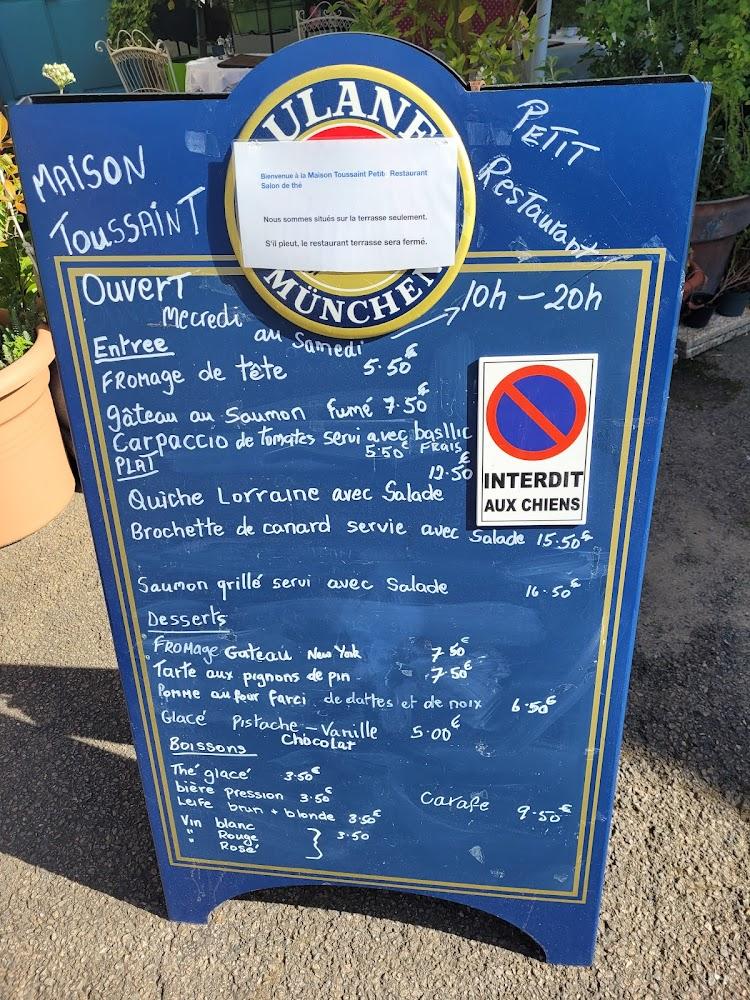 ULANE
Bienvenue à la Maison Toussaint Petit Restaurant
Salon de thé
Nous sommes situés sur la terrasse seulement.
S'il pleut, le restaurant terrasse sera fermé.
MÜNCHEN
MAISON
TOUSSAINT
PETIT
Restaurant
Ouvert
Mecredi au Samedi
10h - 20h
Entree
FROMAGE de tête 5.50€
gâteau au Saumon fumé 7.50€
Carpaccio de Tomates servi avec basilic
5.50€ FRAIS
PLAT
12.50€
Quiche Lorraine avec Salade
Brochette de canard servie avec Salade 15.50€
Saumon grillé servi avec Salade 16.50€
Desserts
FROMAGE Gateau New York 7.50€
Tarte aux pignons de pin 7.50€
Pomme au four farci de dattes et de noix 6.50€
Glacé Pistache - Vanille 5.00€
Chocolat
Boissons
Thé glacé 3.50€
bière pression 3.50€
Leffe brun + blonde 3.50€
Vin blanc
" Rouge } 3.50
" Rosé
Carafe 9.50€
INTERDIT
AUX CHIENS